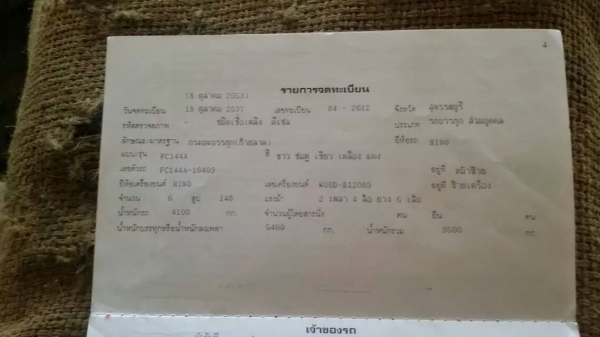 4
รายการจดทะเบียน
18 ตุลาคม 2537
วันจดทะเบียน 18 ตุลาคม 2537 เลขทะเบียน 84 - 2612 จังหวัด สุพรรณบุรี
รหัสตรวจสภาพ - ชนิดเชื้อเพลิง ดีเซล ประเภท รถบรรทุก ส่วนบุคคล
ลักษณะ/มาตรฐาน กระบะบรรทุก ยี่ห้อรถ HINO
แบบ/รุ่น FC144A สี ขาว ชมพู เขียว เหลือง แดง
เลขตัวรถ FC144A-10469 อยู่ที่ หน้าซ้าย
ยี่ห้อเครื่องยนต์ HINO เลขเครื่องยนต์ อยู่ที่ ซ้ายเครื่อง
จำนวน 6 สูบ 146 แรงม้า 2 เพลา 4 ล้อ ยาง 6 เส้น
น้ำหนักรถ 4100 กก. จำนวนผู้โดยสารนั่ง คน ยืน คน
น้ำหนักบรรทุกหรือน้ำหนักลงเพลา 5400 กก. น้ำหนักรวม 9500 กก.
เจ้าของรถ